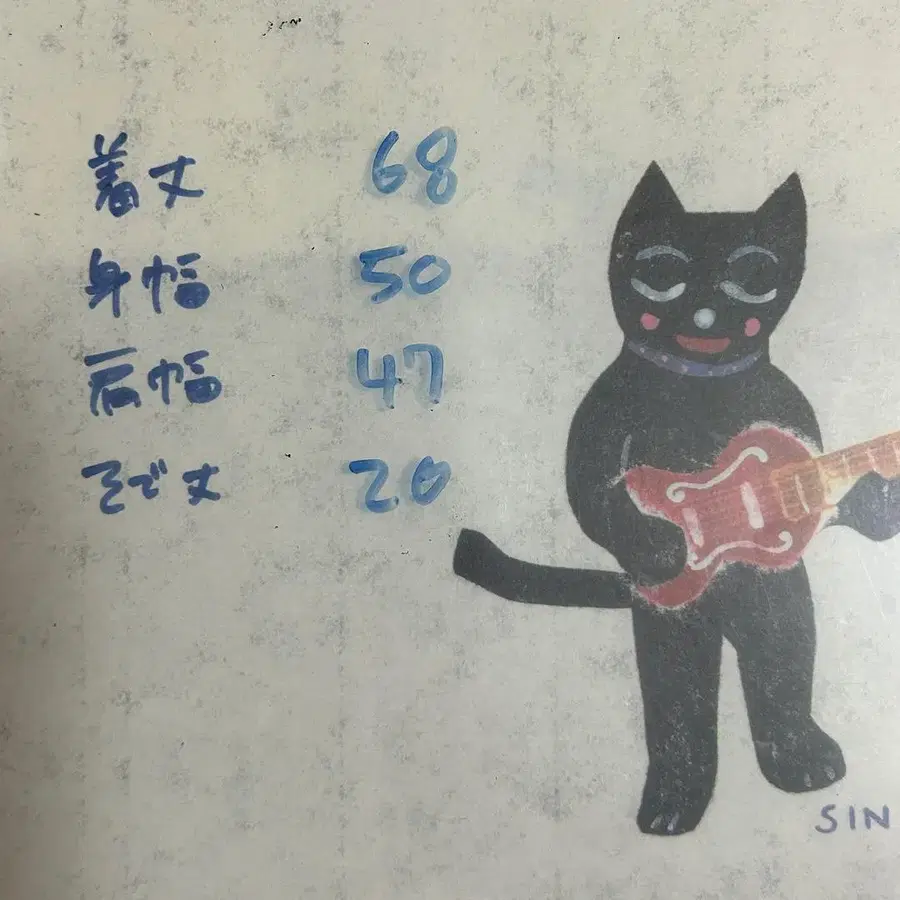 着丈 68
身幅 50
肩幅 47
そで丈 20
SIN